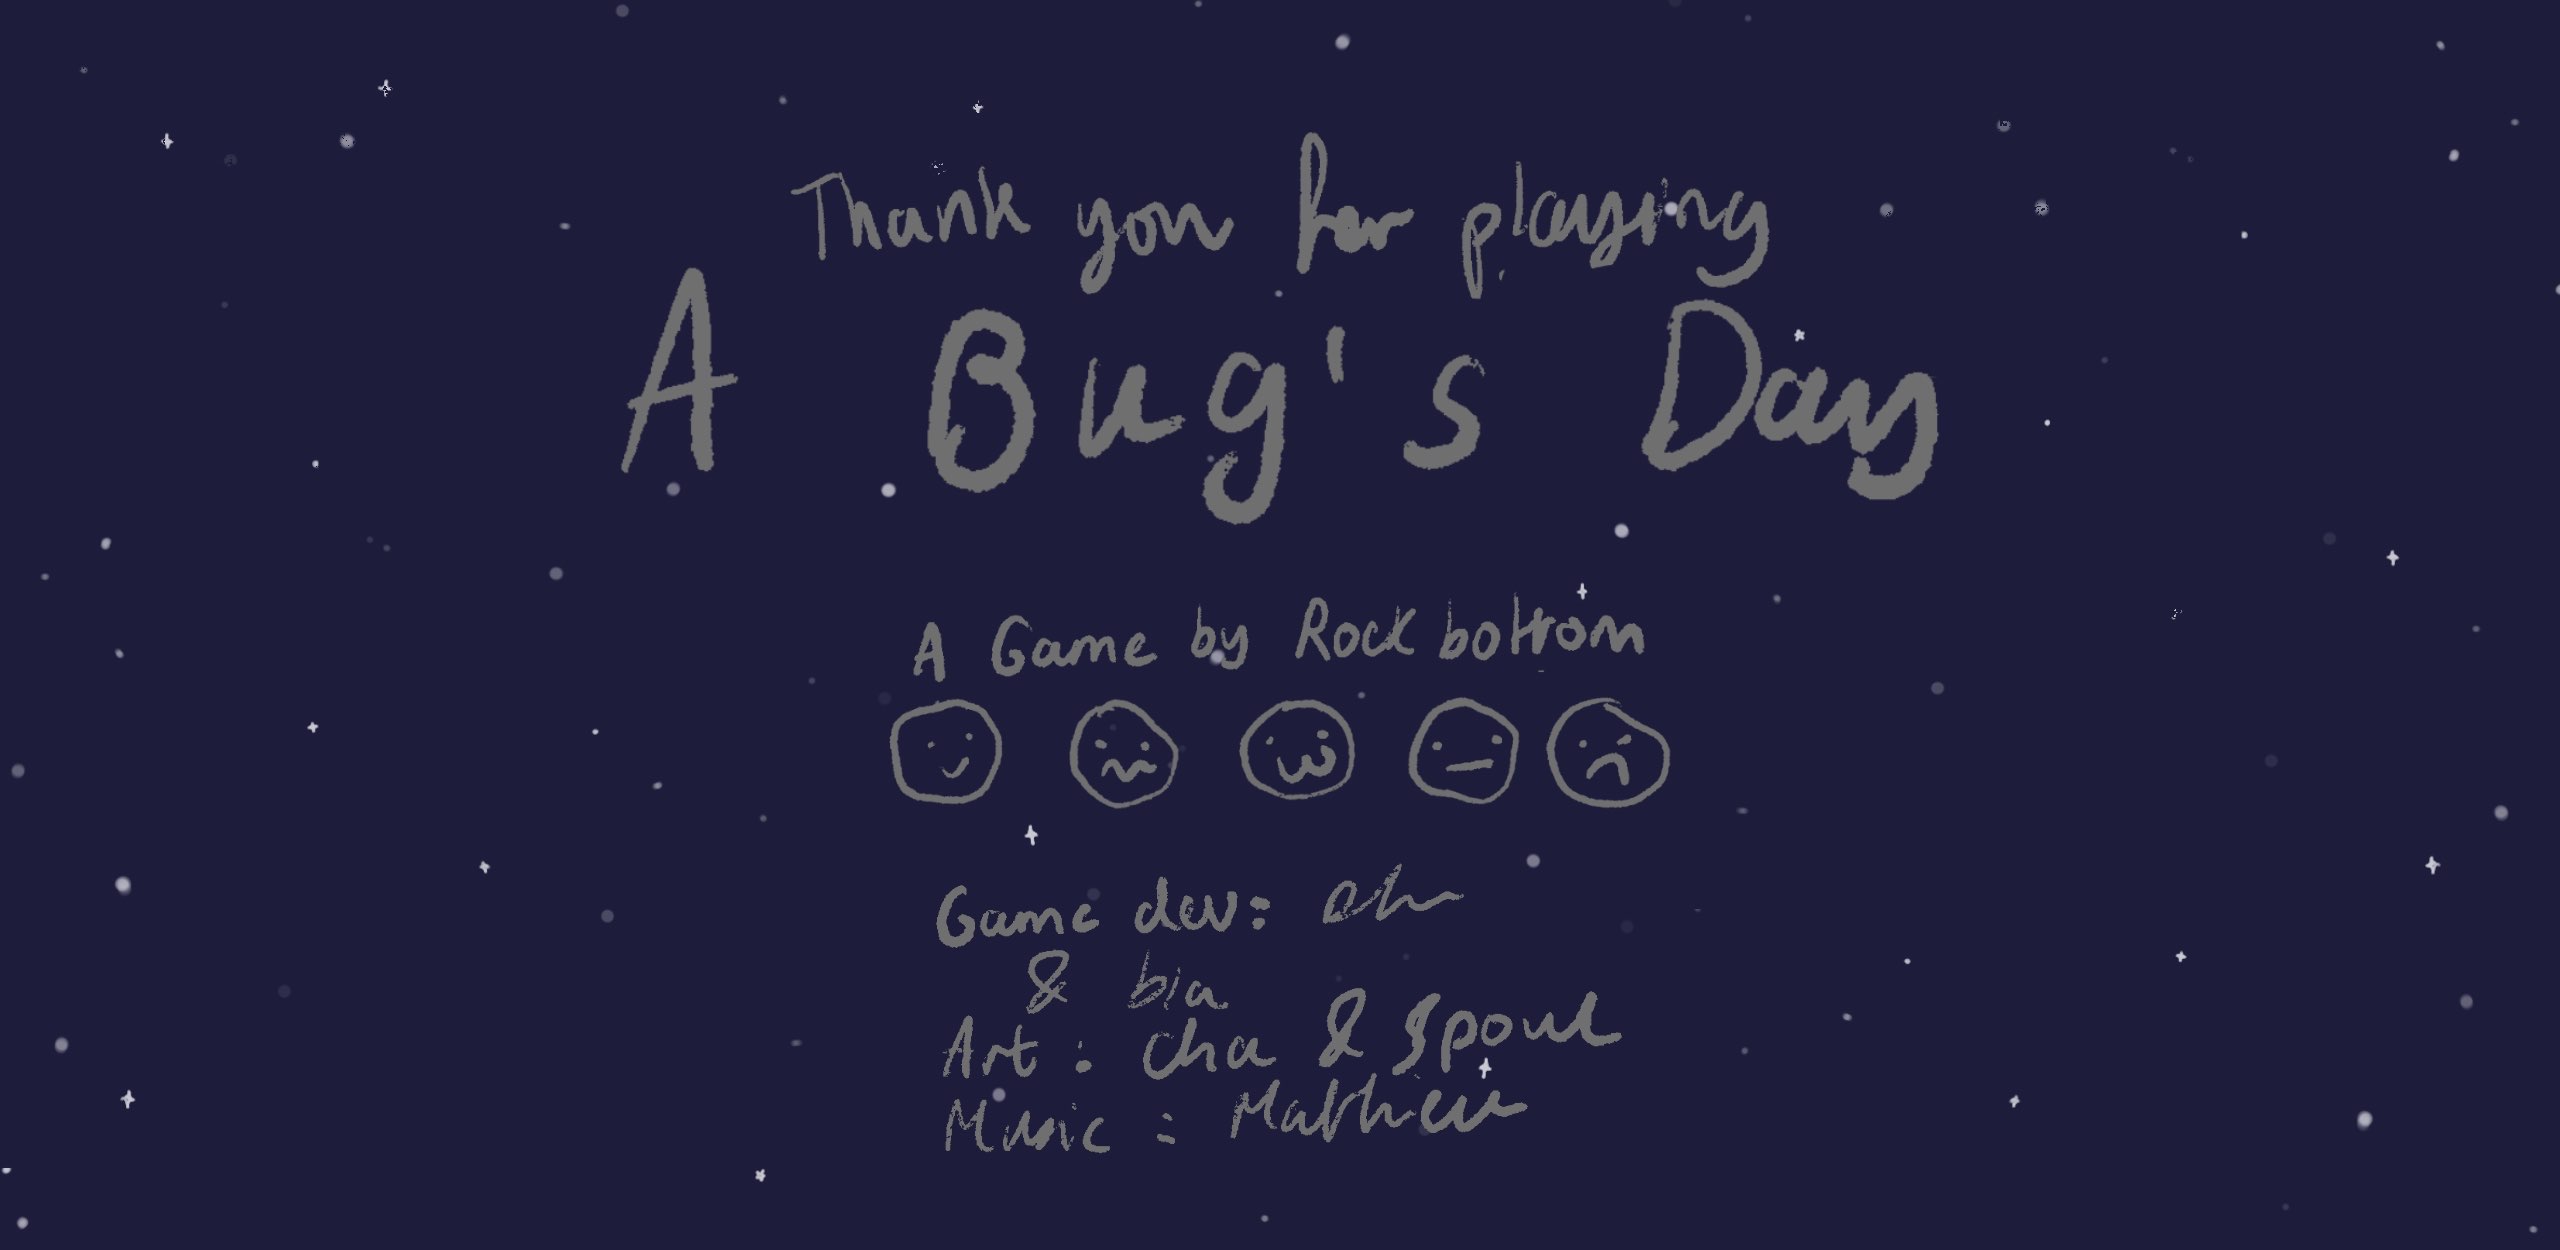 Thank you for playing
A Bug's Day
A Game by Rock bottom
Game dev:
& bia
Art : cha &
Music : Mathieu